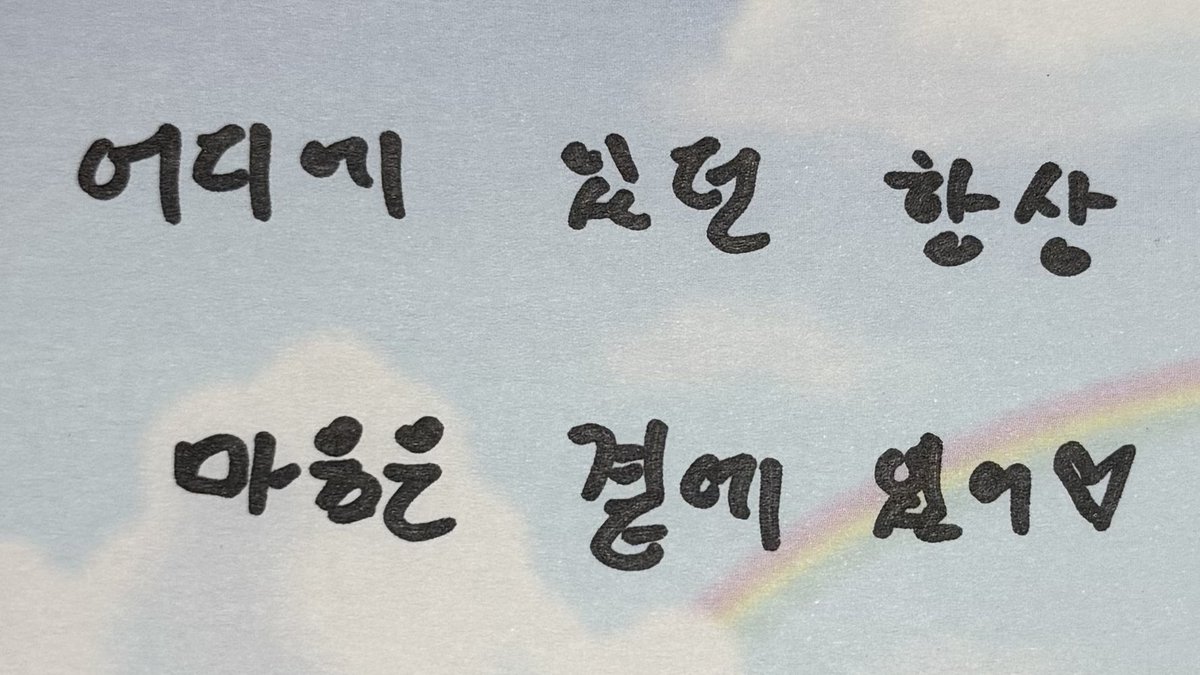 어디에 있던 항상
마음은 곁에 있어♡